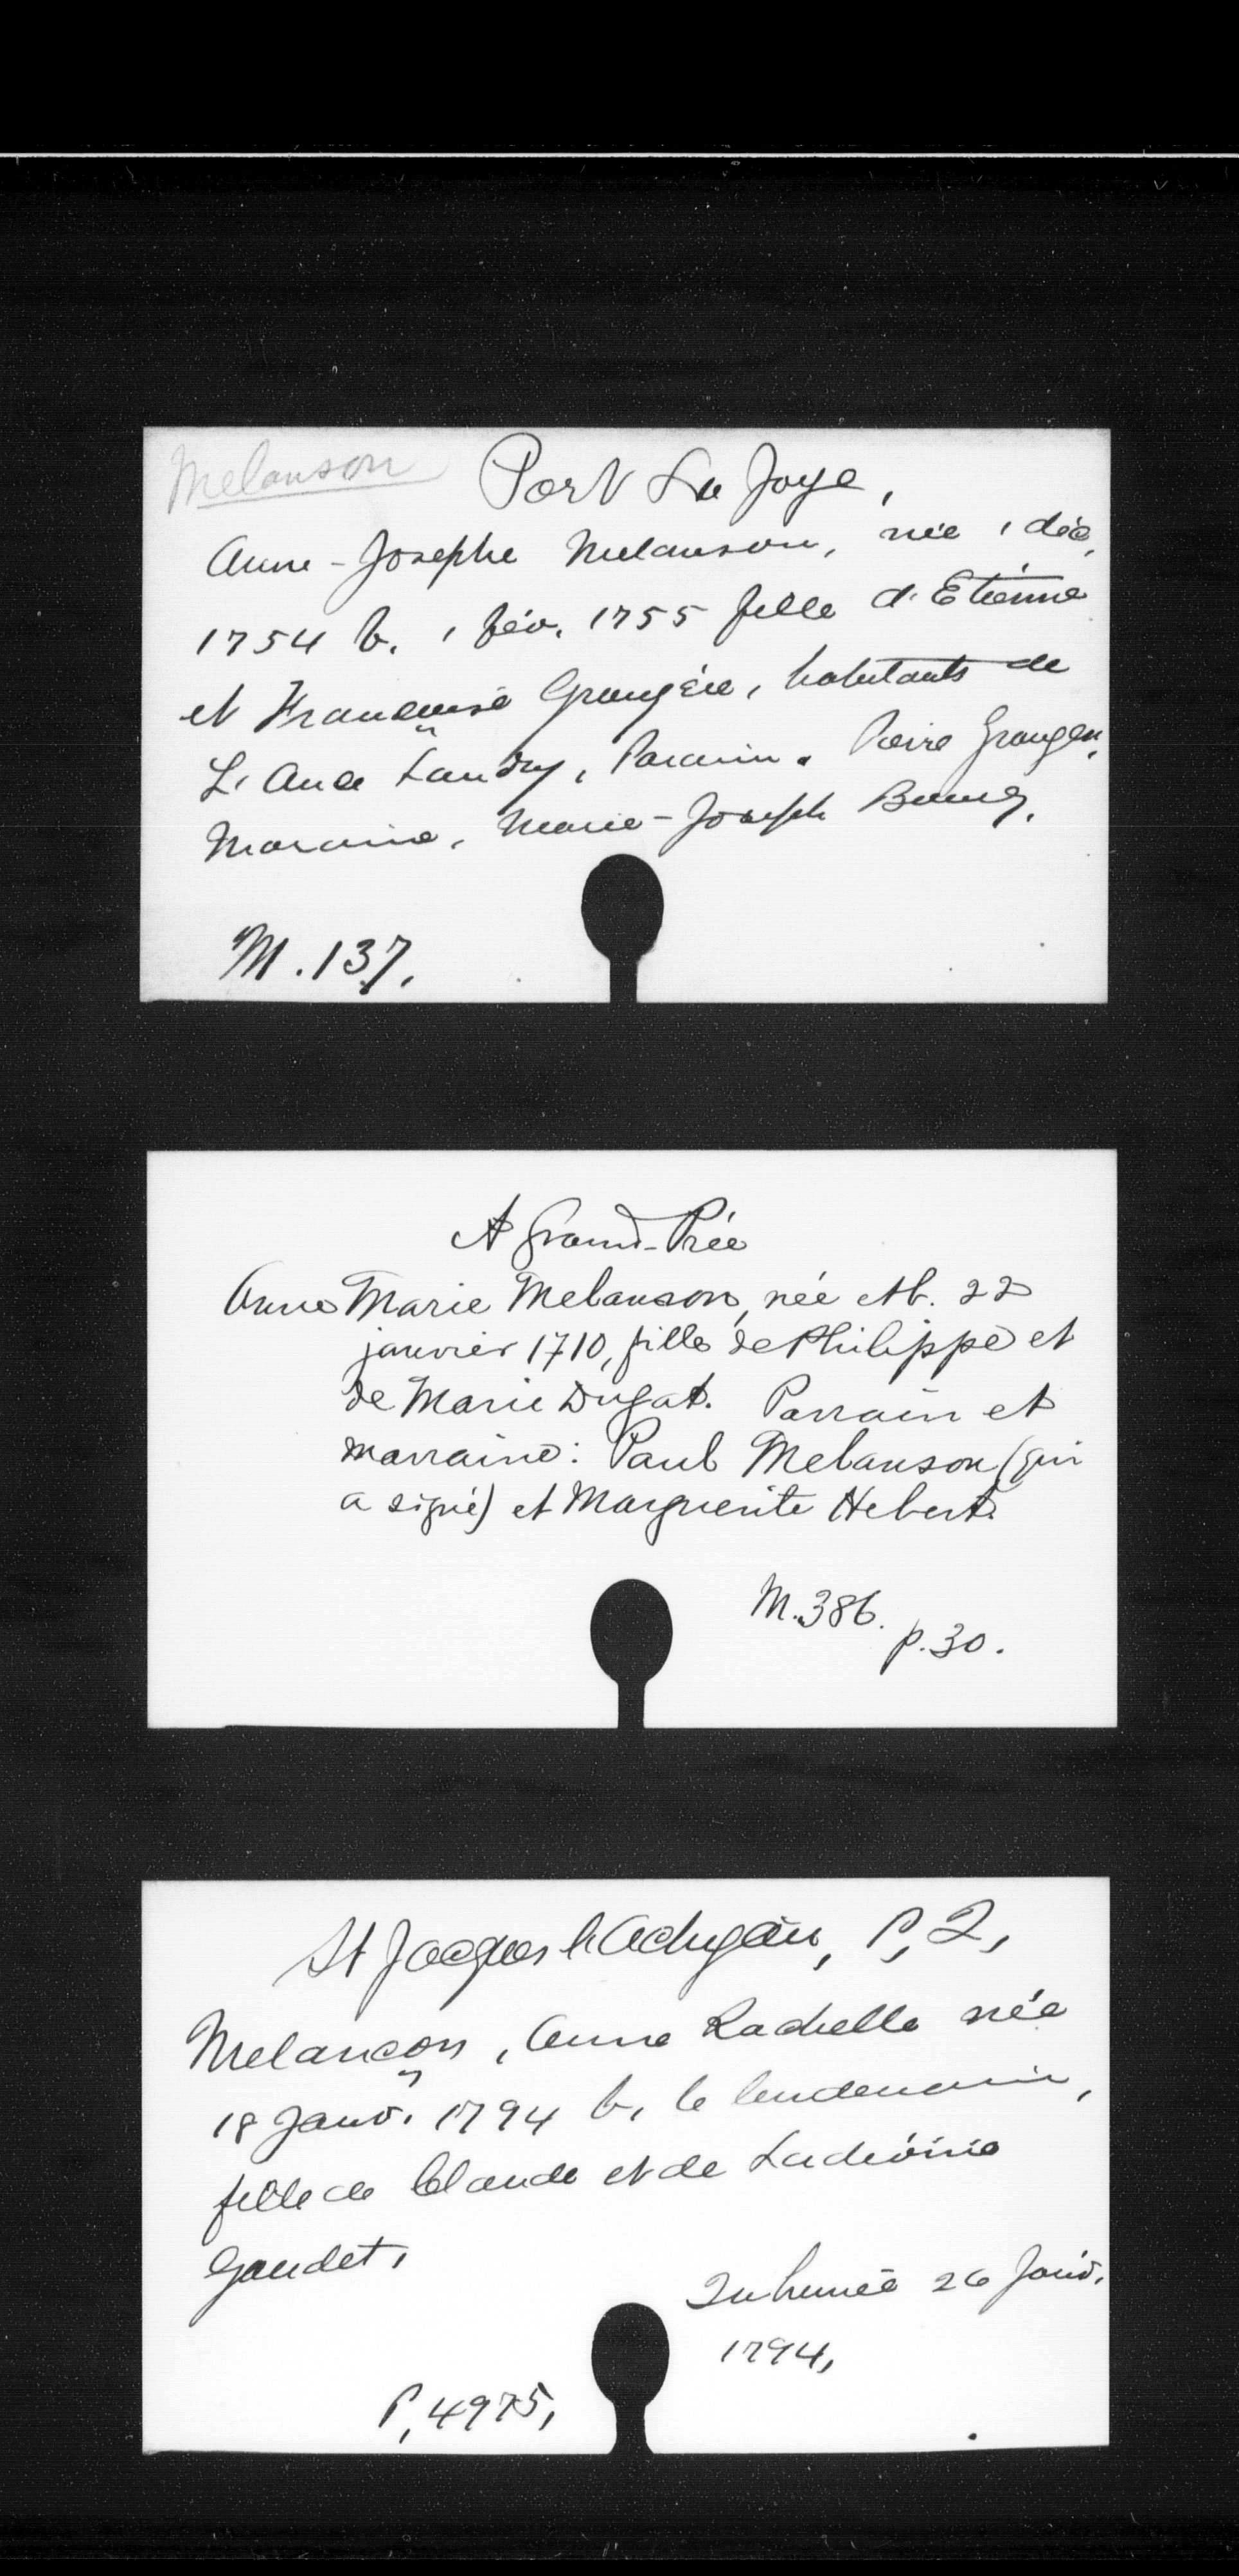 Melanson
Port La Joye,
Anne-Josephe Melanson, née 1 déc,
1754 b. 1 fév. 1755 fille d'Etienne
et Françoise Grangère, habitants de
L'Ance Landry, Parain. Peirre Granger,
Maraine, Marie-Joseph Bourg.
M.137.
A Grand-Prée
Anne Marie Melanson, née et b. 22
janvier 1710, fille de Philippe et
de Marie Dugat. Parrain et
marraine: Paul Melanson (qui
a signé) et Marguerite Hebert.
M.386.
p.30.
St Jacques l'Achigan, P,Q,
Melançon, Anne Rachelle née
18 Janv. 1794 b, le lendemain,
fille de Claude et de Ludivine
Gaudet,
Inhumée 26 Janv.
1794,
P,4975,